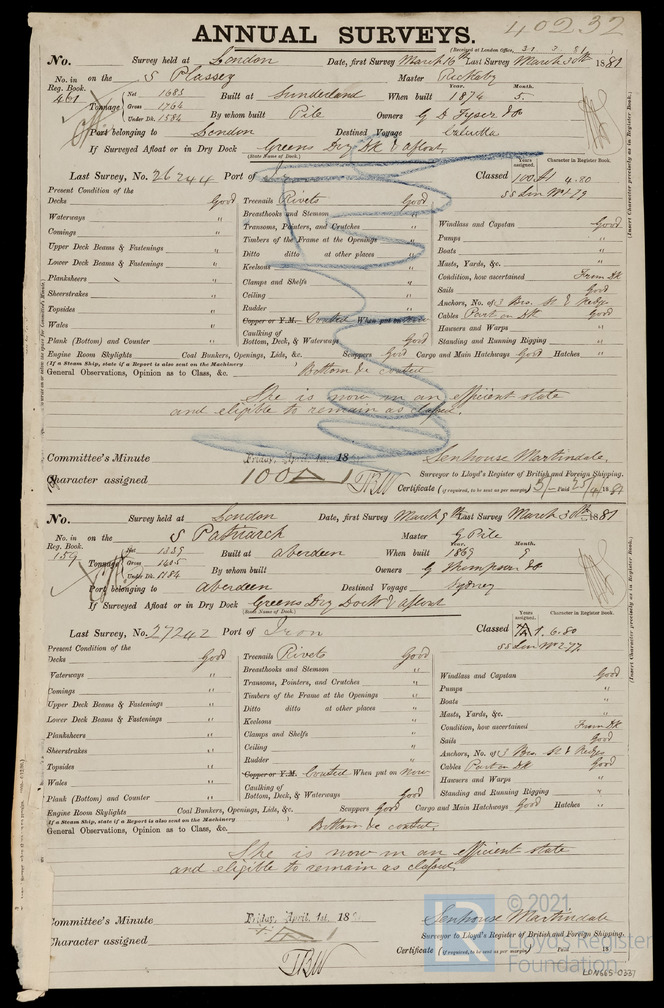 40232
ANNUAL SURVEYS.
(Received at London Office, 31.3.81)
No. Survey held at London Date, first Survey March 16th Last Survey March 30th 1881
No. in on the S Plassey Master
Reg. Book.
461 Tonnage Net 1683 Built at Sunderland When built Year. 1874 Month. 5.
Gross 1764
Under Dk. 1584 By whom built Pile Owners G D Tyser & Co
Port belonging to London Destined Voyage Calcutta
If Surveyed Afloat or in Dry Dock Greens Dry Dk & afloat
(State Name of Dock.)
Last Survey, No. 26244 Port of Classed Years assigned. 100 A1 4.80 Character in Register Book.
SS Lon No 1-79
(Insert Character precisely as in Register Book.)
Present Condition of the
Decks Good
Waterways "
Comings "
Upper Deck Beams & Fastenings "
Lower Deck Beams & Fastenings "
Planksheers "
Sheerstrakes "
Topsides "
Wales "
Plank (Bottom) and Counter "
Treenails Rivets Good
Breasthooks and Stemson "
Transoms, Pointers, and Crutches "
Timbers of the Frame at the Openings "
Ditto ditto at other places "
Keelsons "
Clamps and Shelfs "
Ceiling "
Rudder "
Copper or Y.M. Coated When put on
Caulking of
Bottom, Deck, & Waterways Good
Windlass and Capstan Good
Pumps "
Boats "
Masts, Yards, &c. "
Condition, how ascertained From Dk
Sails Good
Anchors, No. of 3 Brs. St & Kedge
Cables Part on Dk Good
Hawsers and Warps "
Standing and Running Rigging "
Engine Room Skylights Coal Bunkers, Openings, Lids, &c. Scuppers Good Cargo and Main Hatchways Good Hatches "
(If a Steam Ship, state if a Report is also sent on the Machinery )
General Observations, Opinion as to Class, &c. Bottom &c coated
She is now in an efficient state
and eligible to remain as classed.
Committee's Minute Friday, April 1st. 18
Senhouse Martindale.
Character assigned 100 A 1
TBW
Surveyor to Lloyd's Register of British and Foreign Shipping.
Certificate (if required, to be sent as per margin)
No. Survey held at London Date, first Survey March 9th Last Survey March 30th 1881
No. in on the S Patriarch Master G Pile
Reg. Book.
159 Tonnage Net 1339 Built at Aberdeen When built Year. 1869 Month. 9
Gross 1405
Under Dk. 1184 By whom built Owners G Thompson & Co
Port belonging to Aberdeen Destined Voyage Sydney
If Surveyed Afloat or in Dry Dock Greens Dry Dock & afloat
(State Name of Dock.)
Last Survey, No. 27242 Port of Iron Classed Years assigned. 1. 6.80 Character in Register Book.
SS Lon No 2-77
(Insert Character precisely as in Register Book.)
Present Condition of the
Decks Good
Waterways "
Comings "
Upper Deck Beams & Fastenings "
Lower Deck Beams & Fastenings "
Planksheers "
Sheerstrakes "
Topsides "
Wales "
Plank (Bottom) and Counter "
Treenails Rivets Good
Breasthooks and Stemson "
Transoms, Pointers, and Crutches "
Timbers of the Frame at the Openings "
Ditto ditto at other places "
Keelsons "
Clamps and Shelfs "
Ceiling "
Rudder "
Copper or Y.M. Coated When put on Now
Caulking of
Bottom, Deck, & Waterways Good
Windlass and Capstan Good
Pumps "
Boats "
Masts, Yards, &c. "
Condition, how ascertained From Dk
Sails Good
Anchors, No. of 3 Brs. St & Kedges
Cables Part on Dk Good
Hawsers and Warps "
Standing and Running Rigging "
Engine Room Skylights Coal Bunkers, Openings, Lids, &c. Scuppers Good Cargo and Main Hatchways Good Hatches "
(If a Steam Ship, state if a Report is also sent on the Machinery )
General Observations, Opinion as to Class, &c. Bottom &c coated
She is now in an efficient state
and eligible to remain as classed
Committee's Minute Friday, April 1st. 18
Senhouse Martindale
Character assigned
TBW
Surveyor to Lloyd's Register of British and Foreign Shipping.
Certificate (if required, to be sent as per margin) Paid 18
© 2021
Lloyd's Register
Foundation
LON665-0337